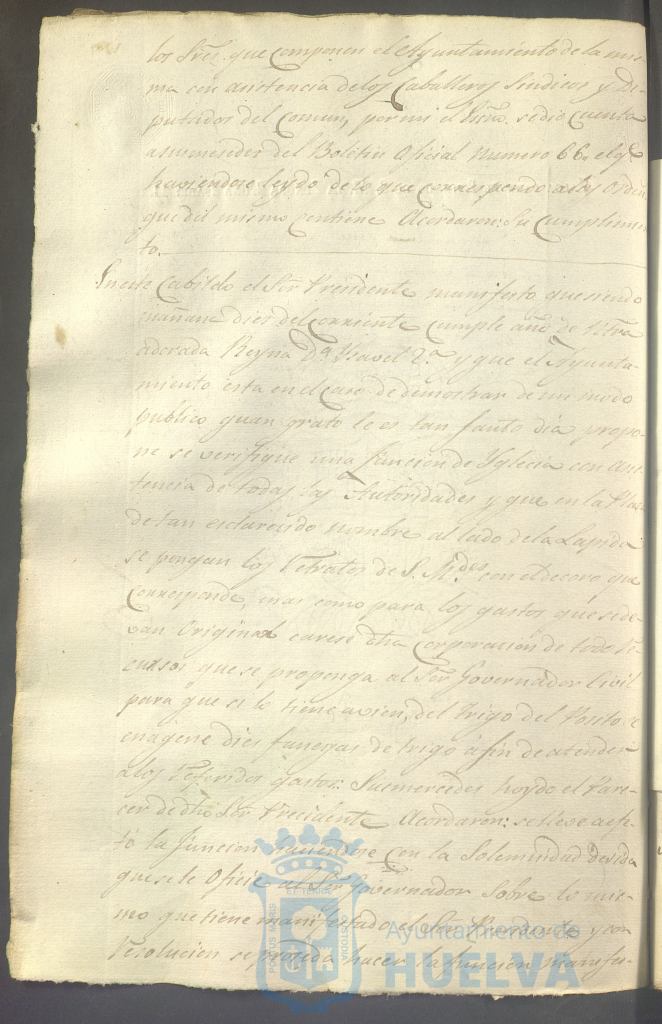 los Sres. que componen el Ayuntamiento de la mis-
ma con asistencia de los Caballeros Sindicos y Di-
putados del Comun, por mi el Esno. se dio cuenta
a sus mercedes del Boletin Oficial Numero 66. el qe.
haviendose leydo de lo que corresponde a las Orden
que del mismo contiene Acordaron: Su Cumplimien
to.
En este Cabildo el Sor. Presidente manifesto que siendo
mañana dies del corriente cumple años de Ntra
adorada Reyna Da. Ysavel 2a. y que el Ayunta-
miento esta en el caso de demostrar de un modo
publico quan grato le es tan fausto dia propo-
ne se verifique una funcion de Yglecia con asis
tencia de todas las Autoridades y que en la Plaza
de tan esclarecido nombre al lado de la Lapida
se pongan los Retratos de S. Mdes. con el decoro que
corresponde, mas como para los gastos que se de-
van Original carese dha Corporacion de todo re-
cursos que se proponga al Sor. Governador Civil
para que si lo tiene a vien, del trigo del Posito se
enagene dies fanegas de trigo a fin de atender
a los referidos gastos: Sus mercedes hoydo el Pare-
cer de dho Sor Precidente Acordaron: se lleve a efe
to la funcion haciendose con la Solemnidad devida
que se le Oficie al Sor Governador sobre lo mis-
mo que tiene manifestado el Sor. Presidente y con
resolucion se proceda hacer la funcion manifes-
PORTUS MARIS
ET TERRAE
CUSTODIA
Ayuntamiento de
HUELVA